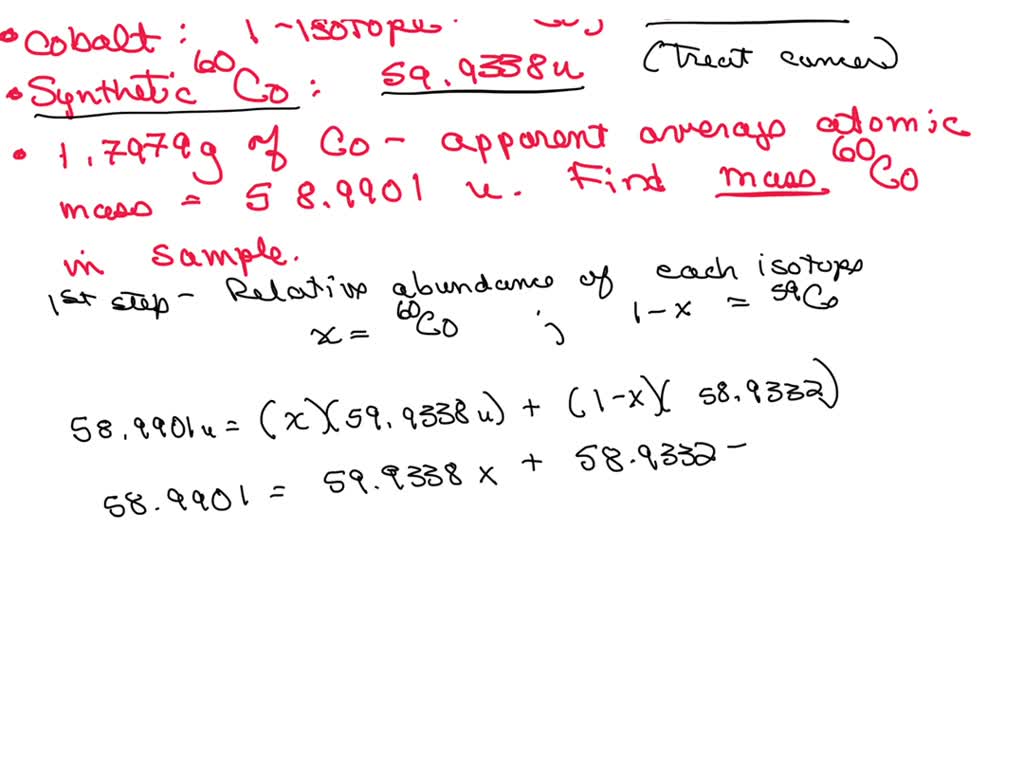 • Cobalt : 1-isotope.
• Synthetic ⁶⁰Co : 59.9338u (Treat cancer)
• 1.7979g of Co - apparent average atomic
mass = 58.9901 u. Find mass ⁶⁰Co
in sample.
1st step - Relative abundance of each isotope
x = ⁶⁰Co ; 1-x = ⁵⁹Co
58.9901u = (x)(59.9338u) + (1-x)(58.9332)
58.9901 = 59.9338x + 58.9332 -